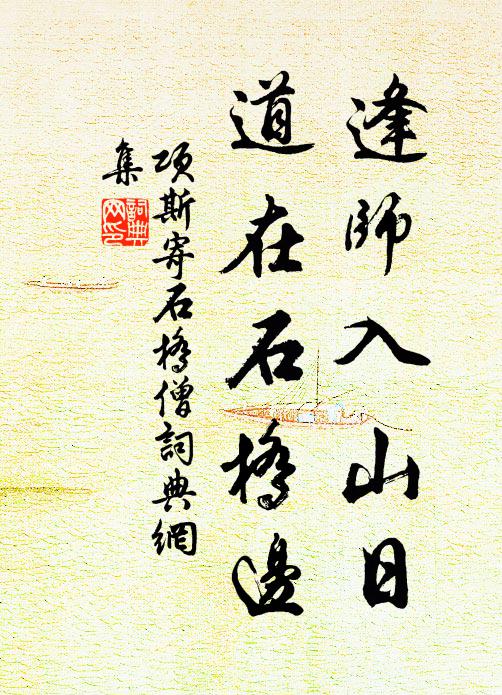 逢師入山日
道在石橋邊
項斯寄石橋僧詞典網
集
詞典
网